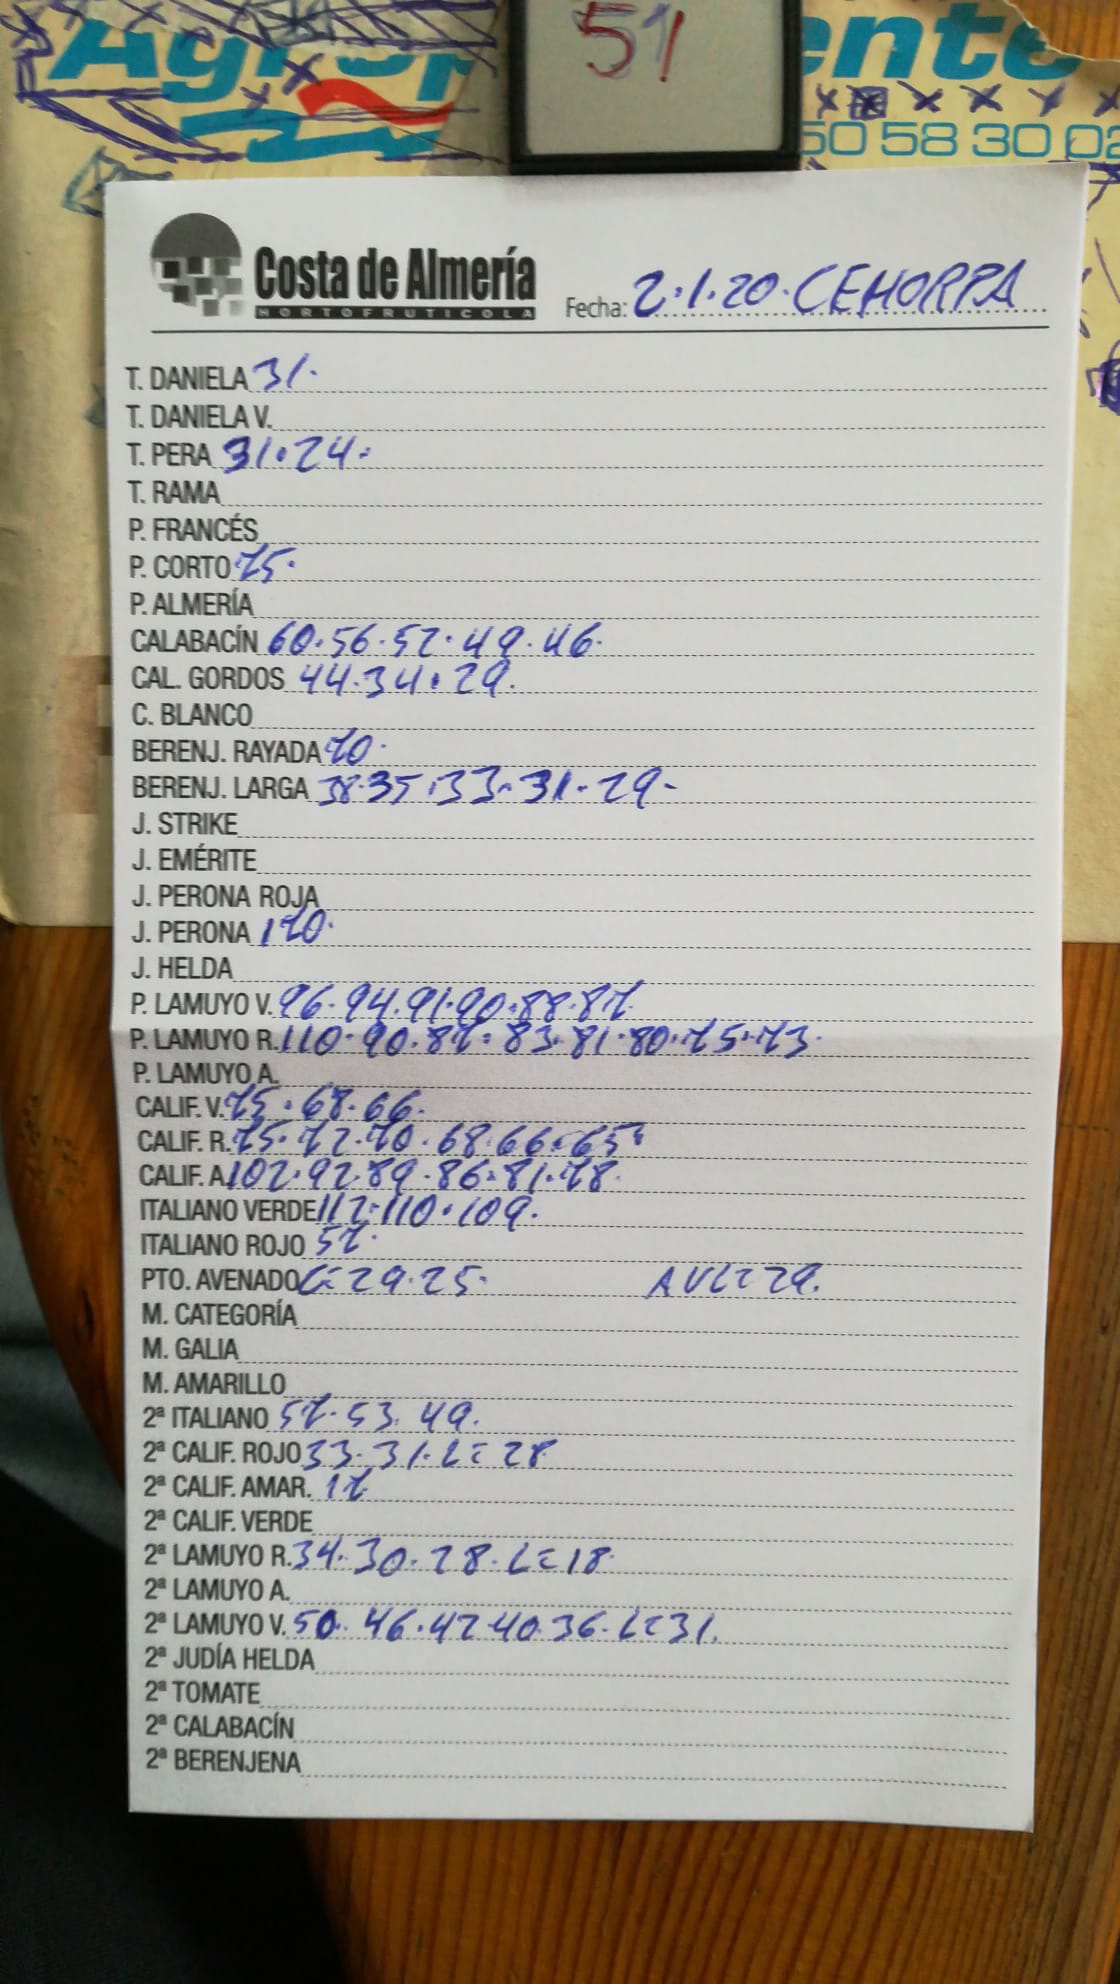 51
50 58 30 02
Costa de Almería
HORTOFRUTICOLA
Fecha: 2.1.20. CEHORPA
T. DANIELA 31.
T. DANIELA V.
T. PERA 31.24.
T. RAMA
P. FRANCÉS
P. CORTO 75.
P. ALMERÍA
CALABACÍN 60.56.52.49.46.
CAL. GORDOS 44.34.29.
C. BLANCO
BERENJ. RAYADA 70.
BERENJ. LARGA 38.35.33.31.29-
J. STRIKE
J. EMÉRITE
J. PERONA ROJA
J. PERONA 170.
J. HELDA
P. LAMUYO V. 96.94.91.90.88.87.
P. LAMUYO R. 110.90.87.83.81.80.75.73.
P. LAMUYO A.
CALIF. V. 75.68.66.
CALIF. R. 75.72.70.68.66.65.
CALIF. A 102.92.89.86.81.78.
ITALIANO VERDE 112.110.109.
ITALIANO ROJO 57.
PTO. AVENADO L=29.25. AVL=29.
M. CATEGORÍA
M. GALIA
M. AMARILLO
2ª ITALIANO 57.53.49.
2ª CALIF. ROJO 33.31.L=28
2ª CALIF. AMAR. 17
2ª CALIF. VERDE
2ª LAMUYO R. 34.30.28.L=18.
2ª LAMUYO A.
2ª LAMUYO V. 50.46.42.40.36.L=31.
2ª JUDÍA HELDA
2ª TOMATE
2ª CALABACÍN
2ª BERENJENA